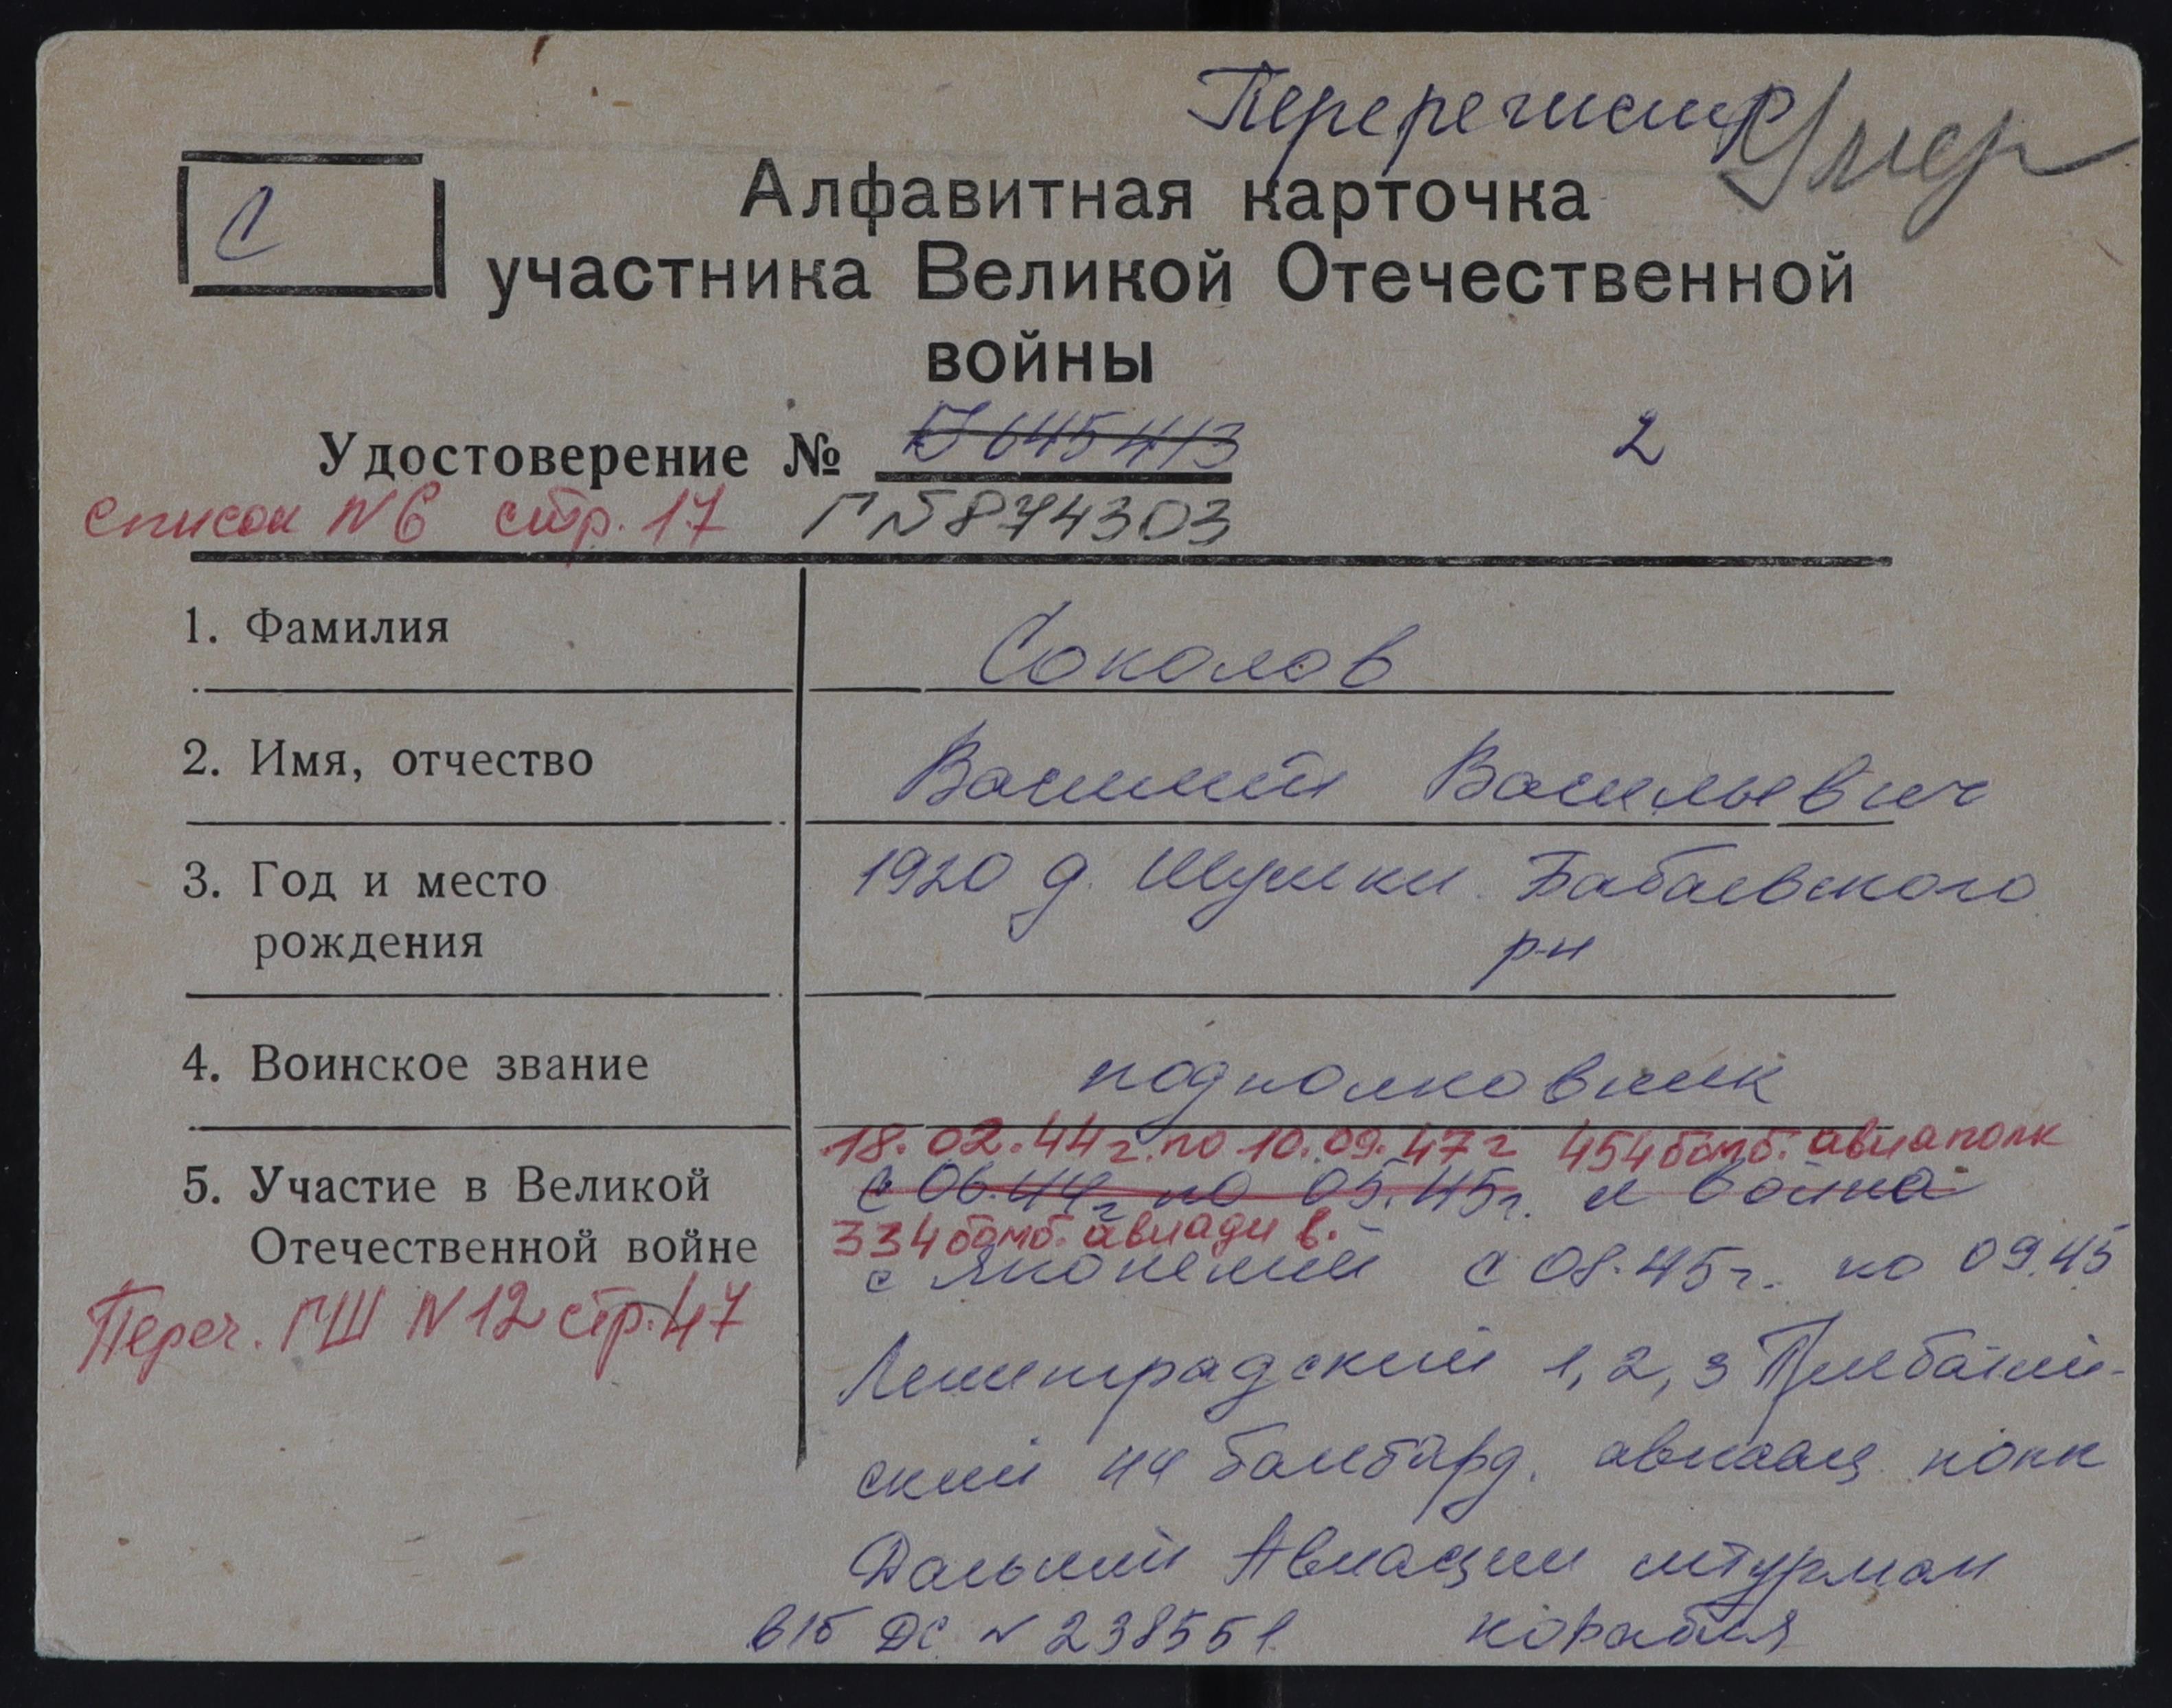 Перерегистр Умер
С
Алфавитная карточка
участника Великой Отечественной
войны
Удостоверение № 645413 2
список N 6 стр. 17 Г № 874303
1. Фамилия Соколов
2. Имя, отчество Василий Васильевич
3. Год и место 1920 д. Шушки Бабаевского
рождения р-н
4. Воинское звание подполковник
18.02.44г. по 10.09.47г 454 бомб. авиаполк
5. Участие в Великой с 06.44г по 05.45г. и война
334 бомб. авиади в.
Отечественной войне с Японией с 08.45г. по 09.45
Переч. ГШ N 12 стр. 47
Ленинградский 1, 2, 3 Прибалтий-
ский бомбард. авиац полк
Дальней Авиации штурман
в/б ДС № 238551 корабля